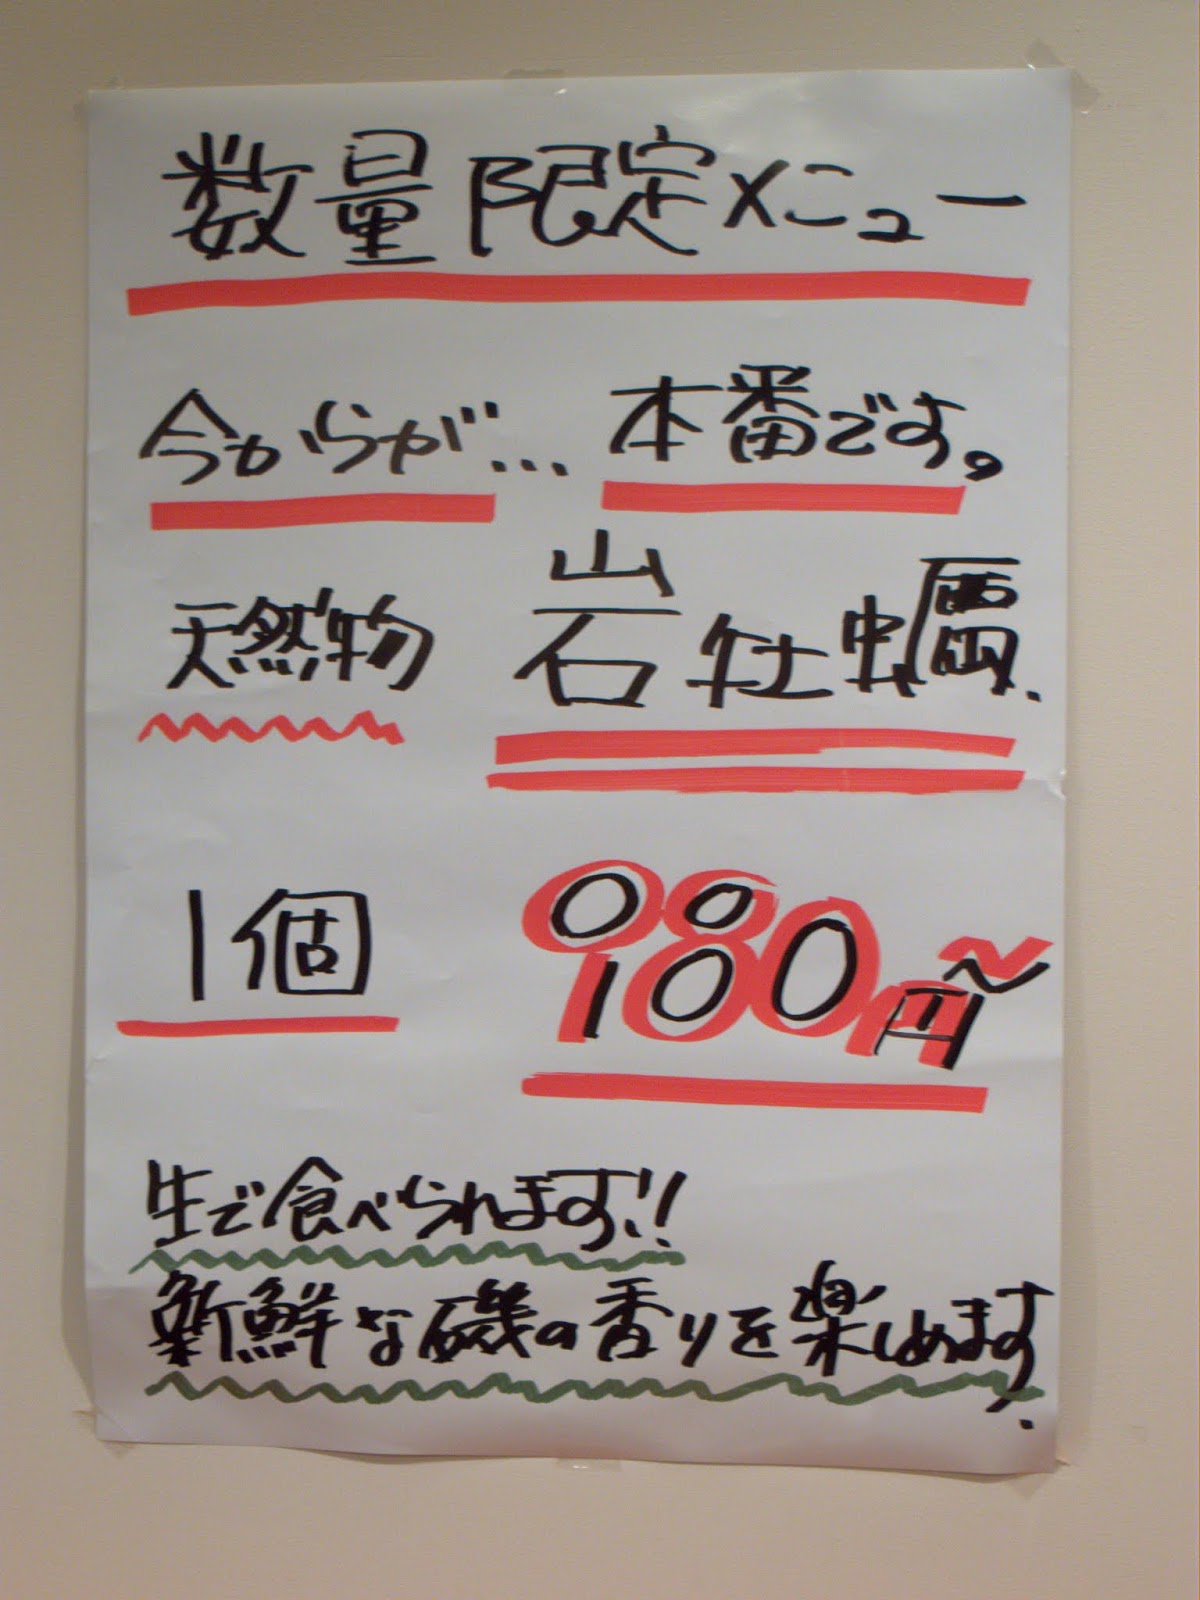 数量限定メニュー
今からが... 本番です。
天然物 岩牡蠣.
1個 980円〜
生で食べられます!!
新鮮な磯の香りを楽しめます.